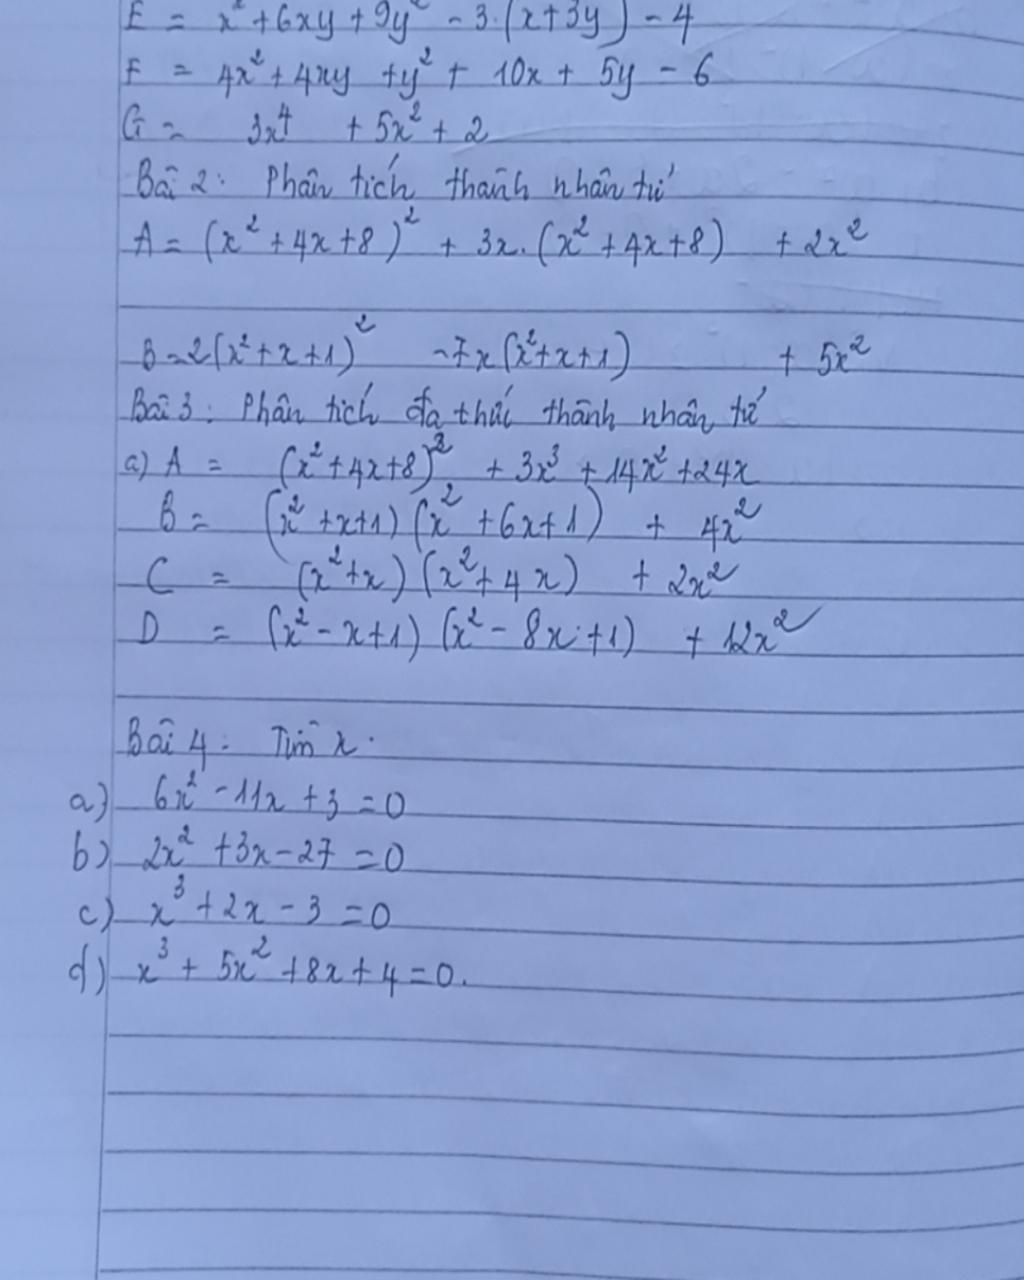 E = x² + 6xy + 9y² - 3.(x+3y) - 4
F = 4x² + 4xy + y² + 10x + 5y - 6
G = 3x⁴ + 5x² + 2
Bài 2: Phân tích thành nhân tử
A = (x² + 4x + 8)² + 3x.(x² + 4x + 8) + 2x²
B = 2(x² + x + 1)² - 7x(x² + x + 1) + 5x²
Bài 3: Phân tích đa thức thành nhân tử
a) A = (x² + 4x + 8)² + 3x³ + 14x² + 24x
B = (x² + x + 1)(x² + 6x + 1) + 4x²
C = (x² + x)(x² + 4x) + 2x²
D = (x² - x + 1)(x² - 8x + 1) + 12x²
Bài 4: Tìm x.
a) 6x² - 11x + 3 = 0
b) 2x² + 3x - 27 = 0
c) x³ + 2x - 3 = 0
d) x³ + 5x² + 8x + 4 = 0.